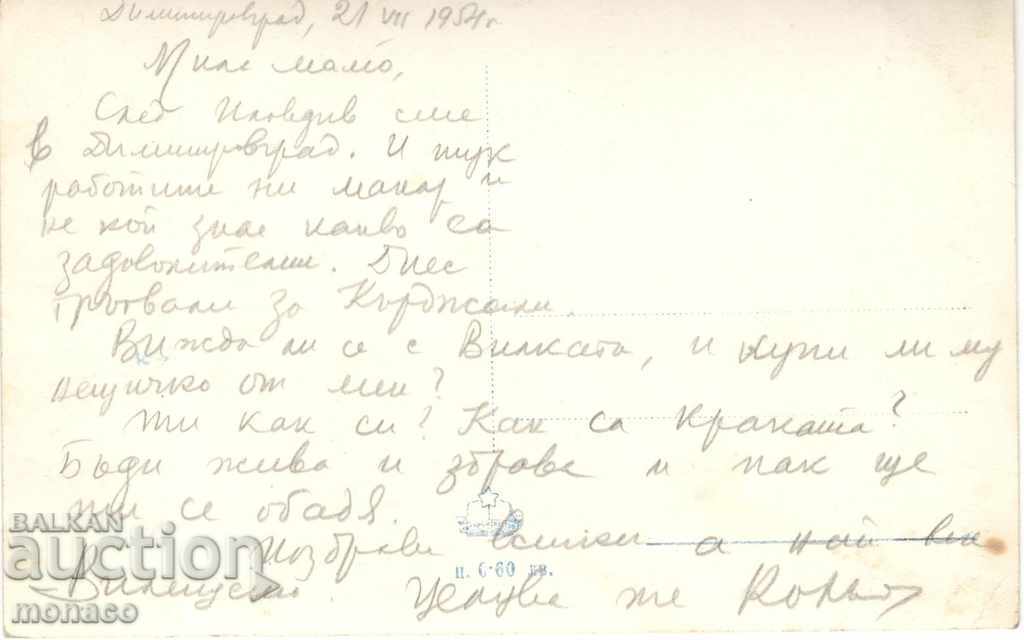 Димитровград, 21 VII 1954 г.
Мила мамо,
След Пловдив сме
в Димитровград. И тук
работите ни макар и
не кой знае какво са
задоволителни. Днес
тръгваме за Кърджали.
Вижда ли се с Вилката, и купи ли му
нещичко от мен?
Ти как си? Как са краката?
Бъди жива и здрава и пак ще
ти се обадя.
Поздрави всички а най вече
Целува те
ц. 0·60 лв.
BALKAN
auction
monaco